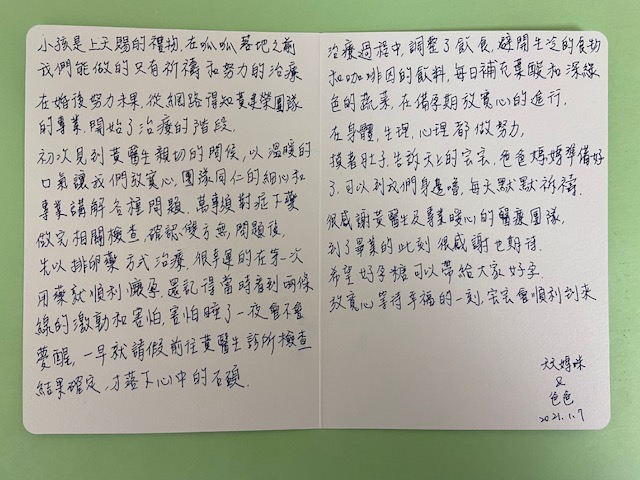 小孩是上天賜的禮物.在呱呱落地之前
我們能做的只有祈禱和努力的治療
在婚後努力未果,從網路得知黃建榮團隊
的專業.開始了治療的階段.
初次見到黃醫生親切的問候,以溫暖的
口氣讓我們放寬心.團隊同仁的細心和
專業講解各種問題.萬事須對症下藥
做完相關檢查.確認雙方無問題後,
先以排卵藥方式治療.很幸運的在第一次
用藥就順利懷孕.還記得當時看到兩條
線的激動和害怕,害怕睡了一夜會不會
夢醒,一早就請假前往黃醫生診所檢查
結果確定,才落下心中的石頭.
治療過程中,調整了飲食,避開生冷的食物
和咖啡因的飲料,每日補充葉酸和深綠
色的蔬菜.在備孕期放寬心的進行.
在身體,生理,心理都做努力,
摸著肚子,告訴天上的宏宏,爸爸媽媽準備好
了.可以到我們身邊嚕,每天默默祈禱.
很感謝黃醫生及專業暖心的醫療團隊,
到了畢業的此刻很感謝也期待.
希望好孕糖可以帶給大家好孕.
放寬心等待幸福的一刻,宏宏會順利到來
天天媽咪
&
爸爸
2021.1.7